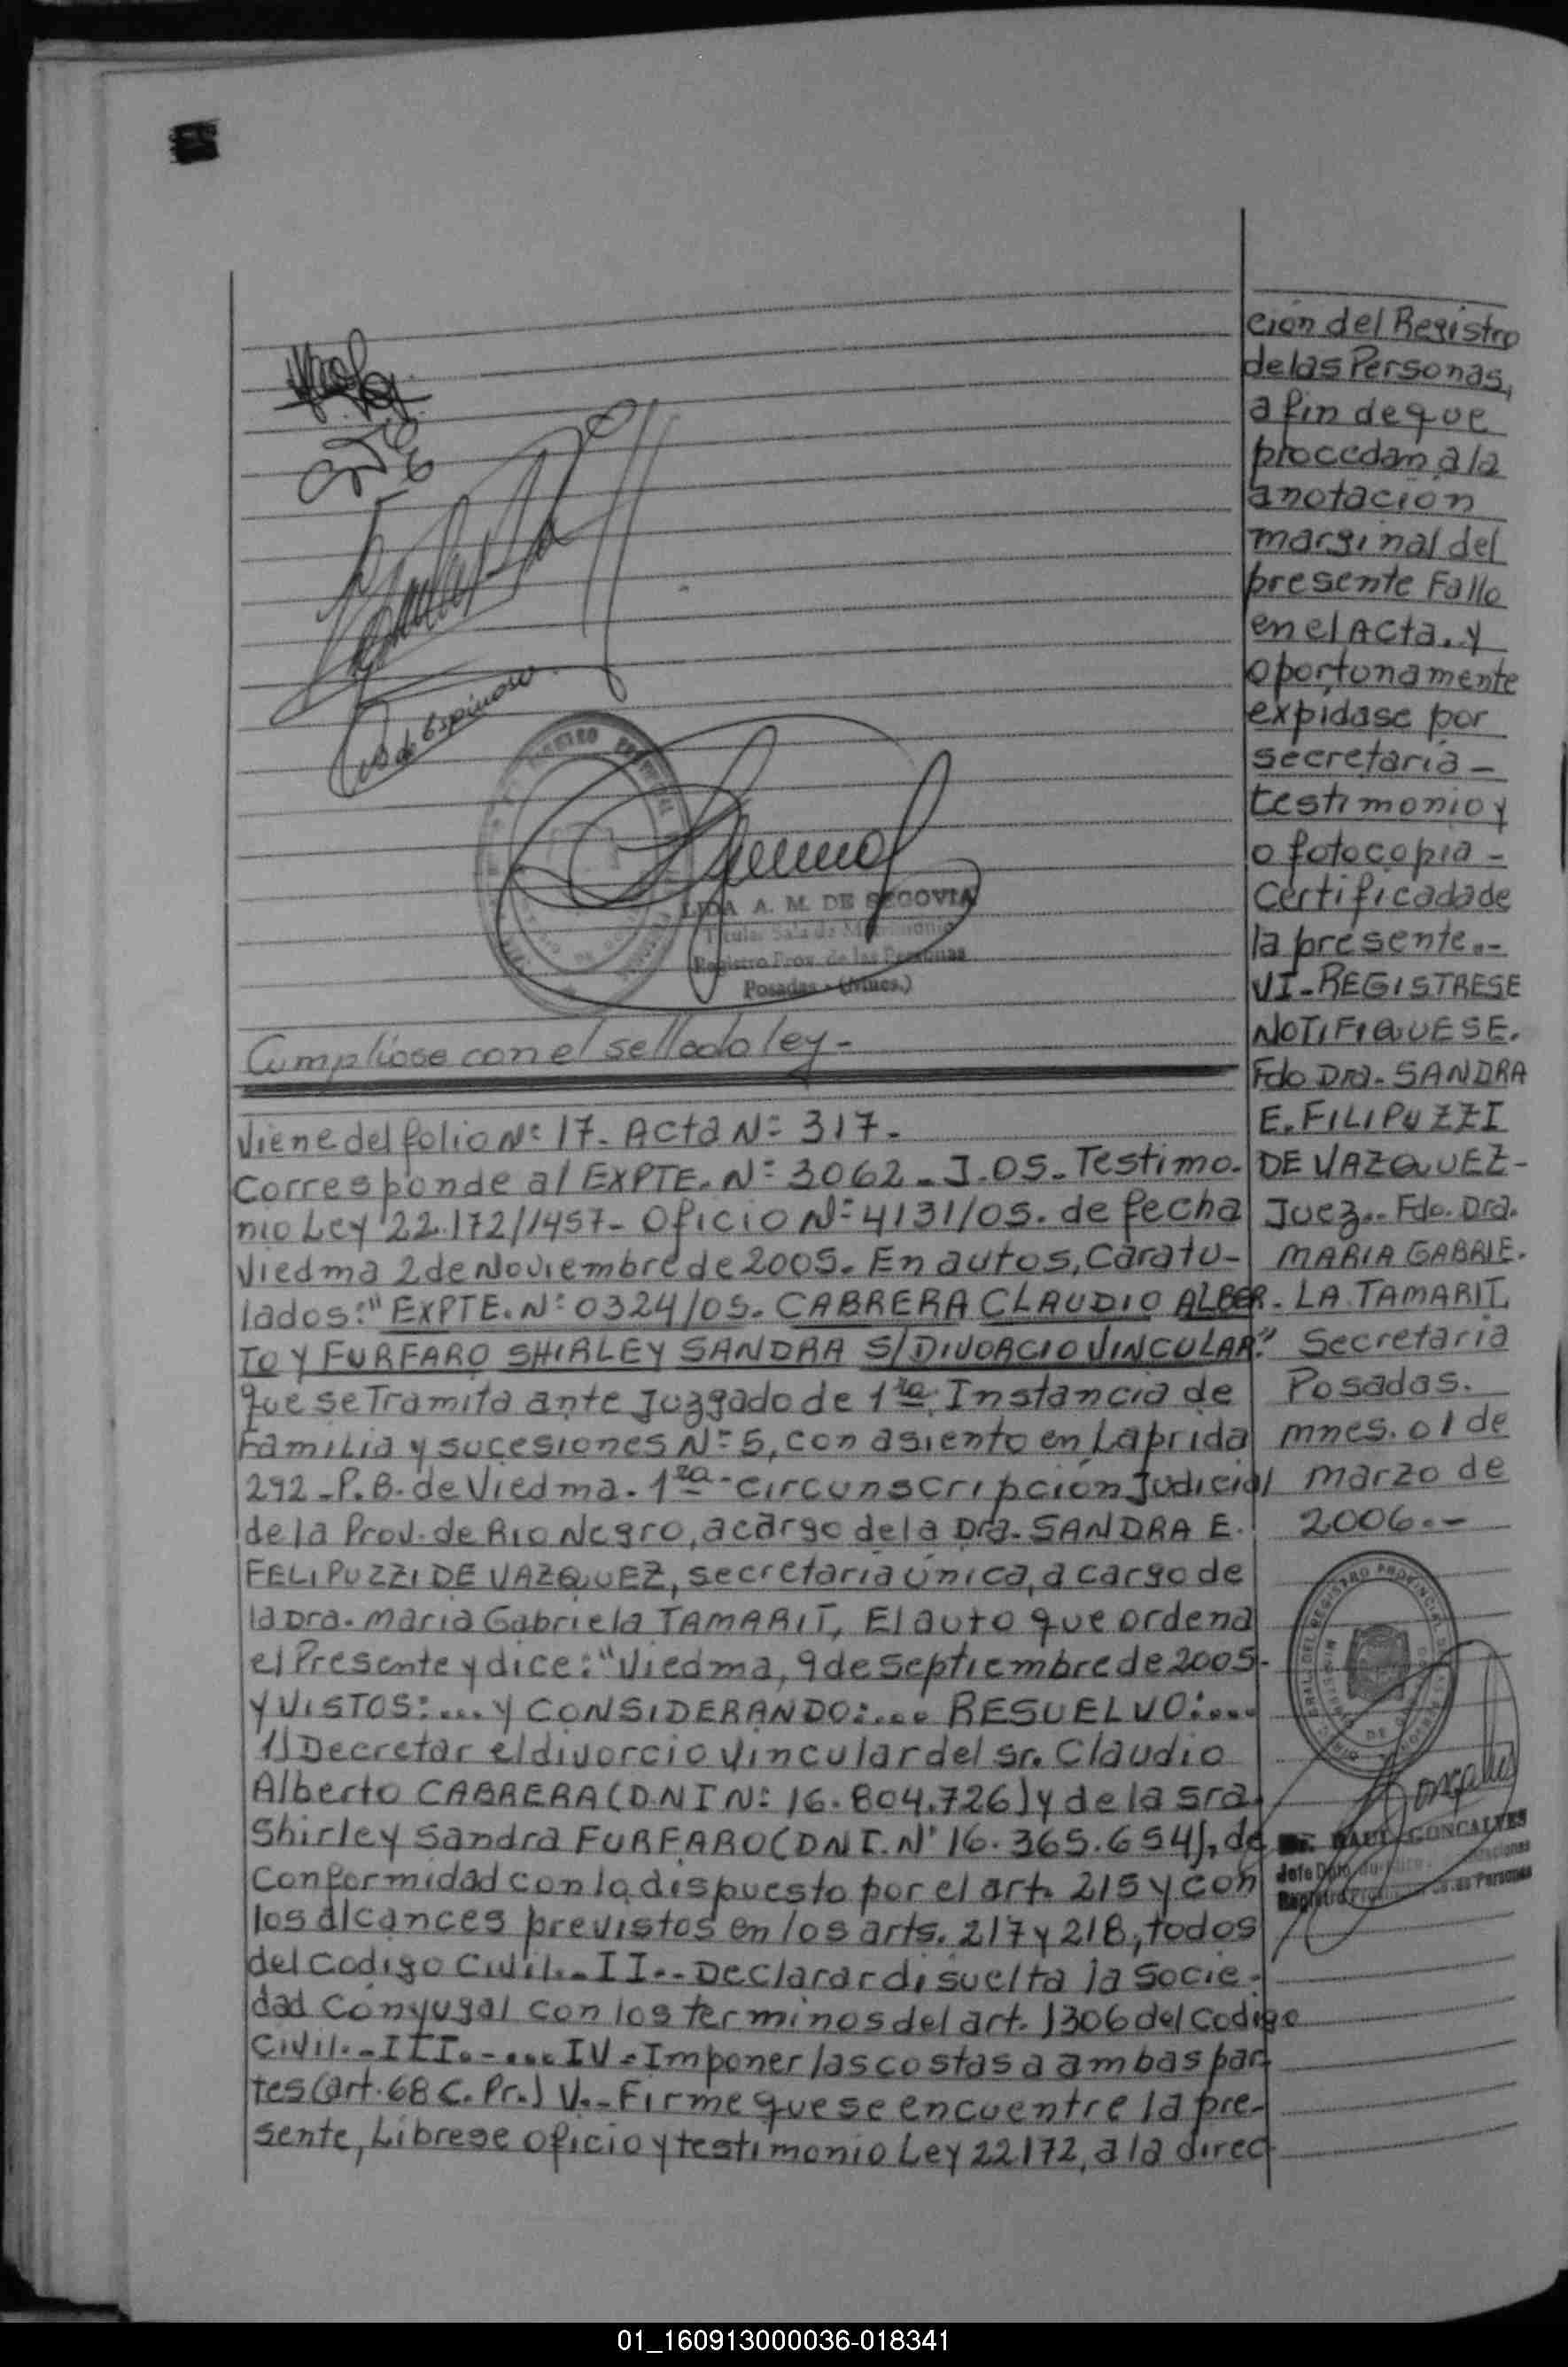 de Espinosa
LIDA A. M. DE SEGOVIA
Titular Sala de Matrimonio
Registro Prov. de las Personas
Posadas - (Mnes.)
Cumplióse con el sellado ley-
Viene del folio Nº 17- Acta Nº 317-
Corresponde al EXPTE. Nº 3062-J.05-Testimo-
nio Ley 22.172/1457- Oficio Nº 4131/05. de fecha
Viedma 2 de Noviembre de 2005. En autos, Caratu-
lados: "EXPTE. Nº 0324/05. CABRERA CLAUDIO ALBER-
TO Y FURFARO SHIRLEY SANDRA S/DIVORCIO VINCULAR."
que se Tramita ante Juzgado de 1ra. Instancia de
Familia y sucesiones Nº 5, con asiento en Laprida
292-P.B. de Viedma. 1ra- circunscripción Judicial
de la Prov. de Rio Negro, a cargo de la Dra. SANDRA E.
FELIPUZZI DE VAZQUEZ, secretaría única, a cargo de
la Dra. Maria Gabriela TAMARIT, El auto que ordena
el Presente y dice: "Viedma, 9 de Septiembre de 2005-
Y VISTOS:... Y CONSIDERANDO:... RESUELVO:....
1) Decretar el divorcio vincular del sr. Claudio
Alberto CABRERA (D.N.I Nº 16.804.726) y de la sra.
Shirley Sandra FURFARO (DNI. Nº 16.365.654), de
Conformidad con lo dispuesto por el art. 215 y con
los alcances previstos en los arts. 217 y 218, todos
del Codigo Civil.-II.-Declarar disuelta la Socie-
dad Conyugal con los terminos del art. 1306 del Codigo
Civil.-III.-....IV-Imponer las costas a ambas par-
tes (art. 68 C. Pr.) V.-Firme que se encuentre la pre-
sente, Líbrese oficio y testimonio Ley 22172, a la direc-
ción del Registro
de las Personas,
a fin de que
procedan a la
anotación
marginal del
presente Fallo
en el Acta. y
oportunamente
expidase por
secretaría-
testimonio y
o fotocopia-
Certificada de
la presente.-
VI-REGISTRESE
NOTIFIQUESE.
Fdo Dra. SANDRA
E. FILIPUZZI
DE VAZQUEZ-
Juez.. Fdo. Dra.
MARIA GABRIE-
LA TAMARIT,
Secretaria
Posadas.
mnes. 01 de
marzo de
2006.-
RAUL GONCALVES
01_160913000036-018341